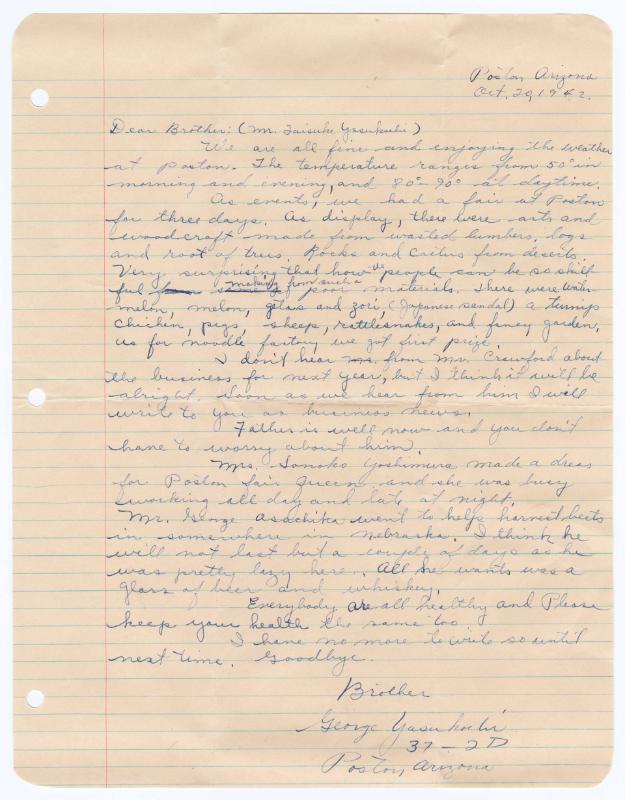 Poston Arizona
Oct. 29, 1942.
Dear Brother: (Mr. Taisuke Yasukochi)
We are all fine and enjoying the weather
at Poston. The temperature ranges from 50° in
morning and evening, and 80°-90° at daytime.
As events, we had a fair at Poston
for three days. As display, there were arts and
woodcraft made from wasted lumbers, logs
and root of trees. Rocks and cactus from deserts.
Very surprising that how the people can be so skill
ful making from such a poor materials. There were water-
melon, melon, getas and zori, (Japanese sandal) a turnips
chicken, pigs, sheep, rattlesnakes, and, fancy garden,
us for noodle factory we got first prize.
I don't hear from Mr. Crawford about
the business for next year, but I think it will be
alright. Soon as we hear from him I will
write to you as business news.
Father is well now and you don't
have to worry about him.
Mrs. Sonoko Yoshimura made a dress
for Poston fair queen and she was busy
working all day and late at night.
Mr. George Asachika went to helps harvest beets
in somewhere in Nebraska. I think he
will not last but a couple of days as he
was pretty lazy here. All he wants was a
glass of beer and whiskey.
Everybody are all healthy and Please
keep your health the same too
I have no more to write so until
next time. Goodbye.
Brother
George Yasukochi
37-2D
Poston, Arizona